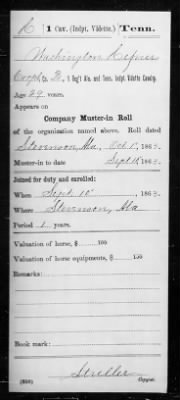 1 Cav. (Indpt. Vidette.) Tenn.
Washington Hefner
Corpl, Co. D, 1 Reg't Ala. and Tenn. Indpt. Vidette Cavalry.
Age 29 years.
Appears on
Company Muster-in Roll
of the organization named above. Roll dated
Stevenson, Ala, Oct 1, 1863.
Muster-in to date Sept 10, 1863.
Joined for duty and enrolled:
When Sept. 10, 1863.
Where Stevenson, Ala
Period 1 years.
Valuation of horse, $ 100
Valuation of horse equipments, $ 150
Remarks:
Book mark:
Copyist.